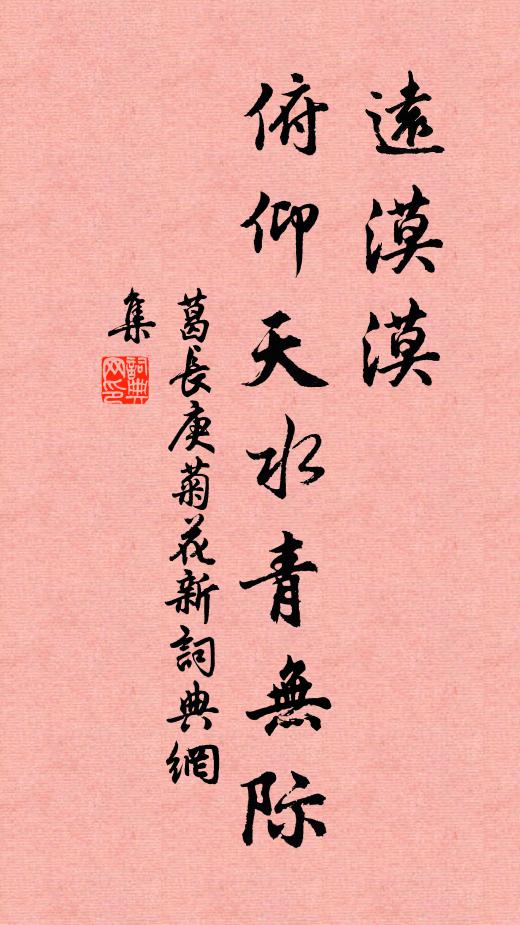 遠漠漠
俯仰天水青無际
葛長庚菊花新詞典網
集
詞典
网印